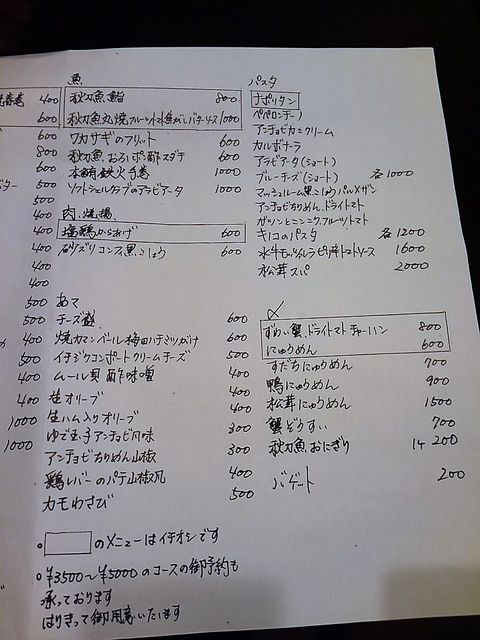 魚
秋刀魚鮨 800
秋刀魚丸焼フルーツトマト焦がしバターソース 1000
ワカサギのフリット 600
秋刀魚おろしポン酢スダチ 600
本鮪鉄火手巻 1000
ソフトシェルクラブのアラビアータ 1000
肉、焼揚
塩鶏からあげ 600
砂ズリコンフィ黒こしょう 600
あて
チーズ 600
焼カマンベール梅田ハチミツがけ 600
イチジクコンポートクリームチーズ 500
ムール貝酢味噌 400
生オリーブ 400
生ハム入りオリーブ 400
ゆで玉子アンチョビ風味 300
アンチョビちりめん山椒 300
鶏レバーのパテ山椒風 400
カモわさび 500
パスタ
ナポリタン
ペペロンチーノ
アンチョビカニクリーム
カルボナーラ
アラビアータ(ショート)
ブルーチーズ(ショート) 各1000
マッシュルーム黒こしょうパルメザン
アンチョビちりめん、ドライトマト
ガッツンとニンニク、フルーツトマト
キノコのパスタ 各1200
水牛モッツァレラピザ産トマトソース 1600
松茸スパ 2000
〆
ずわい蟹、ドライトマトチャーハン 800
にゅうめん 600
すだちにゅうめん 700
鴨にゅうめん 900
松茸にゅうめん 1500
蟹ぞうすい 700
秋刀魚おにぎり 1ヶ 200
バゲット 200
400
600
600
800
500
500
400
400
400
400
400
500
500
400
400
400
400
1000
1000
。 のメニューはイチオシです
。¥3500〜¥5000のコースの御予約も
承っております
はりきって御用意いたします